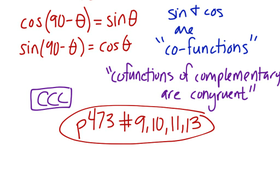 cos(90-θ) = sinθ
sin(90-θ) = cosθ
sin & cos
are
"co-functions"
"cofunctions of complementary
are congruent"
CCC
p473 #9,10,11,13